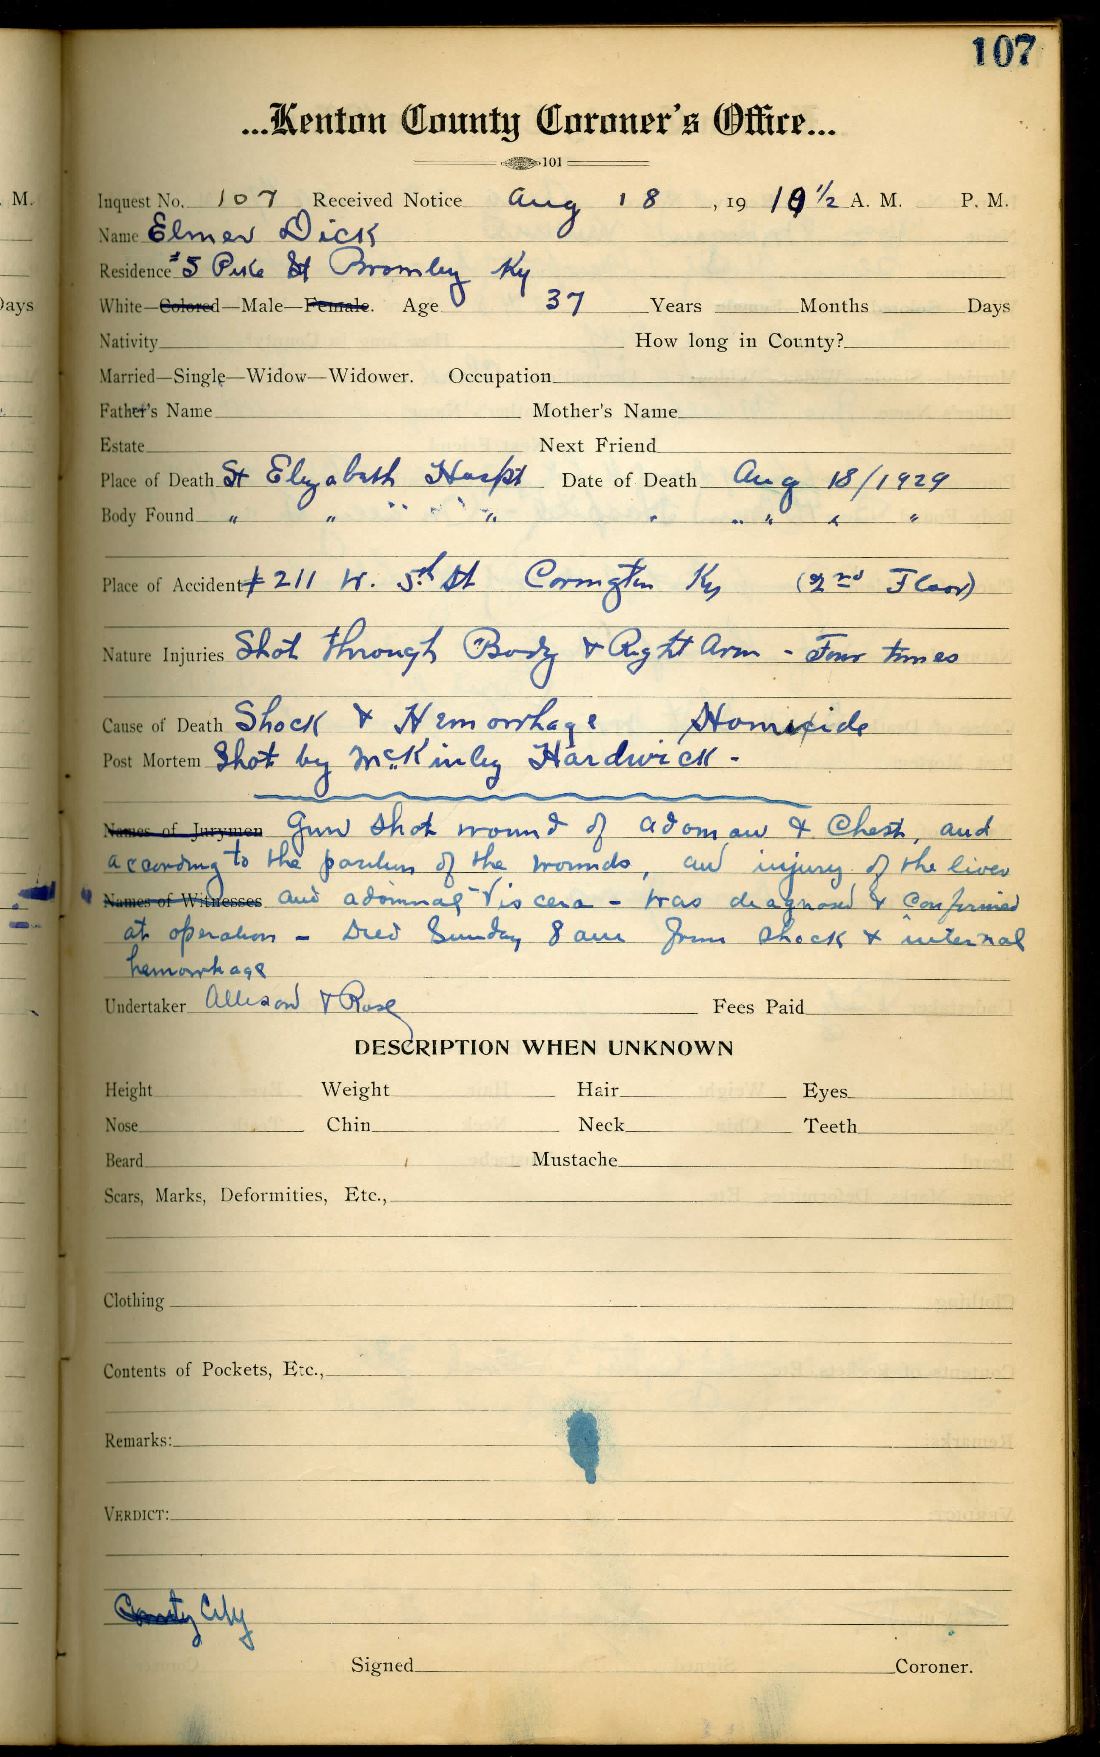 107
...Kenton County Coroner's Office...
101
M.
Inquest No. 107 Received Notice Aug 18, 19 10 1/2 A. M. P. M.
Name Elmer Dick
Residence #5 Pike St Bromley Ky
Days
White—Colored—Male—Female. Age 37 Years Months Days
Nativity How long in County?
Married—Single—Widow—Widower. Occupation
Father's Name Mother's Name
Estate Next Friend
Place of Death St Elizabeth Hospt Date of Death Aug 18/1929
Body Found " " " " " " " " " "
Place of Accident # 211 W. 5th St Covington Ky (2nd Floor)
Nature Injuries Shot through Body & Right Arm - Four times
Cause of Death Shock & Hemorrhage Homicide
Post Mortem Shot by McKinley Hardwick -
Names of Jurymen Gun shot wound of adomen & Chest, and
according to the position of the wounds, an injury of the liver
Names of Witnesses and adominal Viscera - was diagnosed & Confirmed
at operation - Died Sunday 8 am from shock & internal
hemorrhage
Undertaker Allison & Rose Fees Paid
DESCRIPTION WHEN UNKNOWN
Height Weight Hair Eyes
Nose Chin Neck Teeth
Beard Mustache
Scars, Marks, Deformities, Etc.,
Clothing
Contents of Pockets, Etc.,
Remarks:
VERDICT:
County City
Signed Coroner.